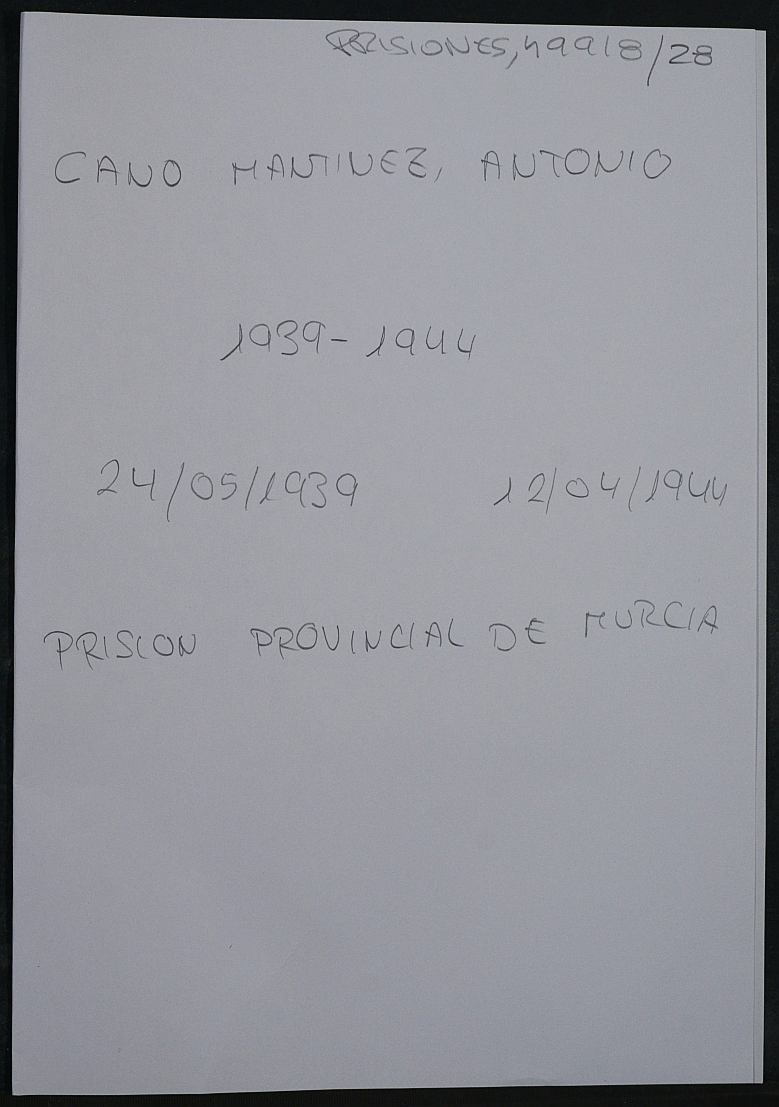 PRISIONES, 49918/28
CANO MANTINEZ, ANTONIO
1939-1944
24/05/1939 12/04/1944
PRISION PROVINCIAL DE MURCIA